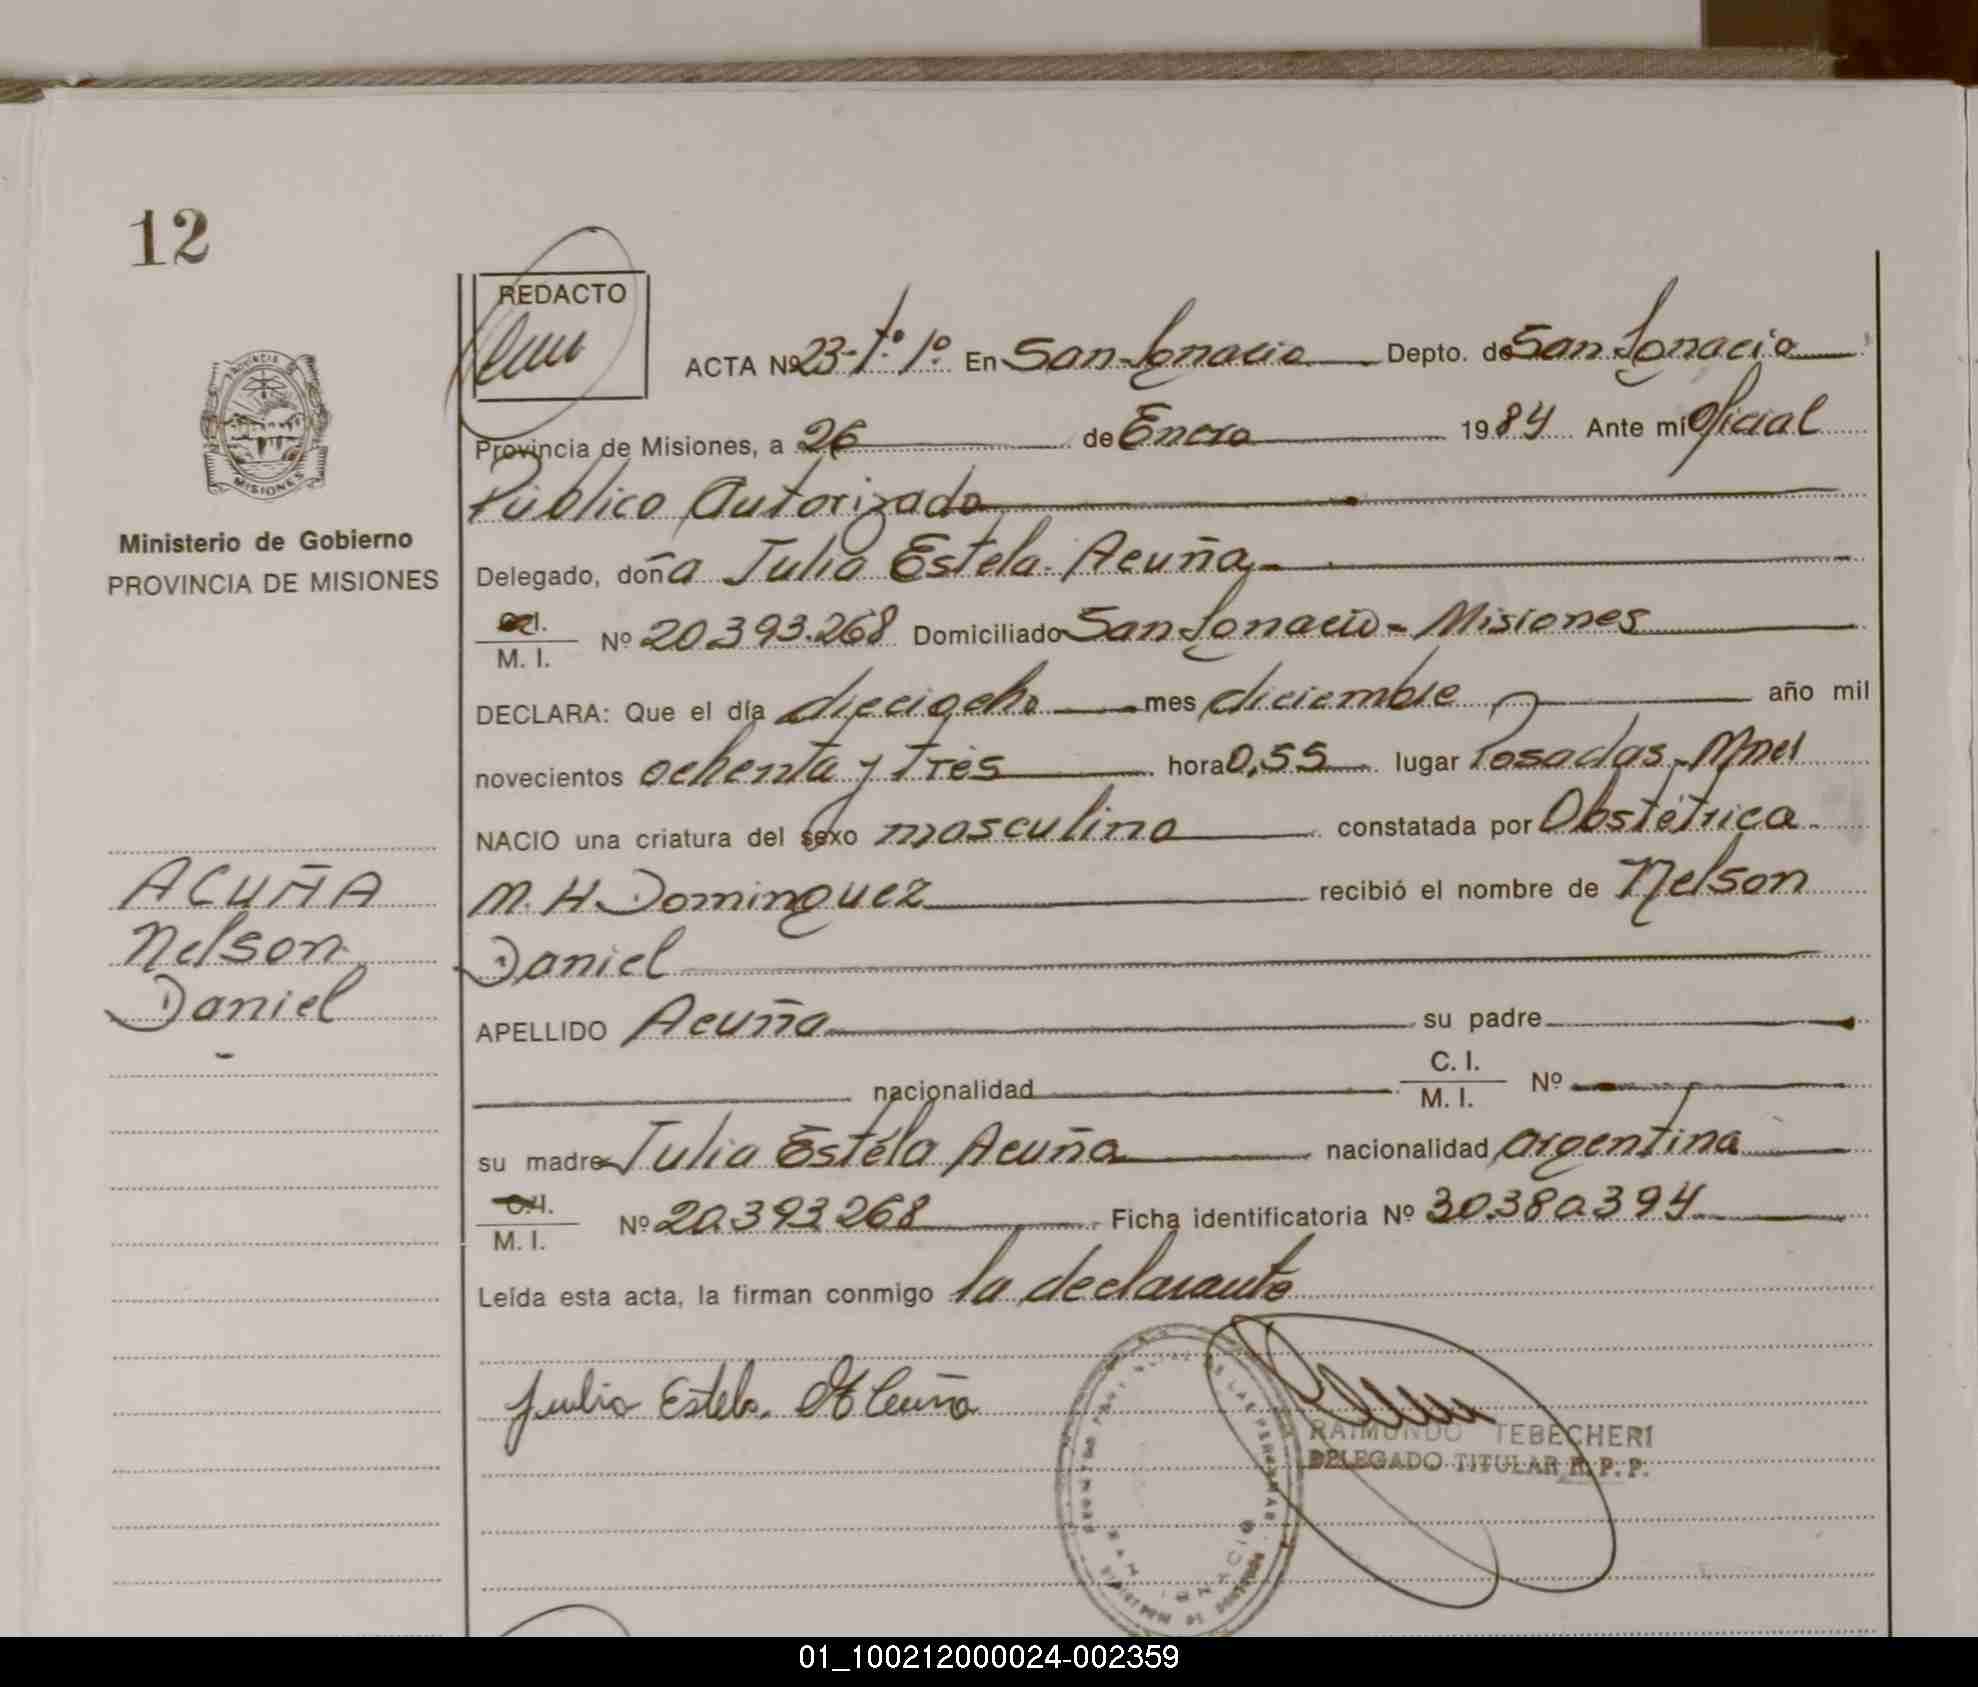 12
REDACTO
ACTA Nº 23-Tº 1º. En San Ignacio Depto. de San Ignacio
Provincia de Misiones, a 26 de Enero 1984 Ante mi Oficial
Público Autorizado
Delegado, doña Julia Estela Acuña
C.I.
M. I. Nº 20.393.268 Domiciliado San Ignacio - Misiones
DECLARA: Que el día dieciocho mes diciembre año mil
novecientos ochenta y tres hora 0,55 lugar Posadas - Mnes
NACIO una criatura del sexo masculino constatada por Obstétrica
M. H. Dominguez recibió el nombre de Nelson
Daniel
APELLIDO Acuña su padre
nacionalidad C. I.
M. I. Nº
su madre Julia Estela Acuña nacionalidad argentina
C.I.
M. I. Nº 20.393.268 Ficha identificatoria Nº 30.380.394
Leída esta acta, la firman conmigo la declarante
Julia Estela Acuña
RAIMUNDO TEBECHERI
DELEGADO TITULAR R. P. P.
PROVINCIA
MISIONES
Ministerio de Gobierno
PROVINCIA DE MISIONES
ACUÑA
Nelson
Daniel
SAN IGNACIO
01_100212000024-002359